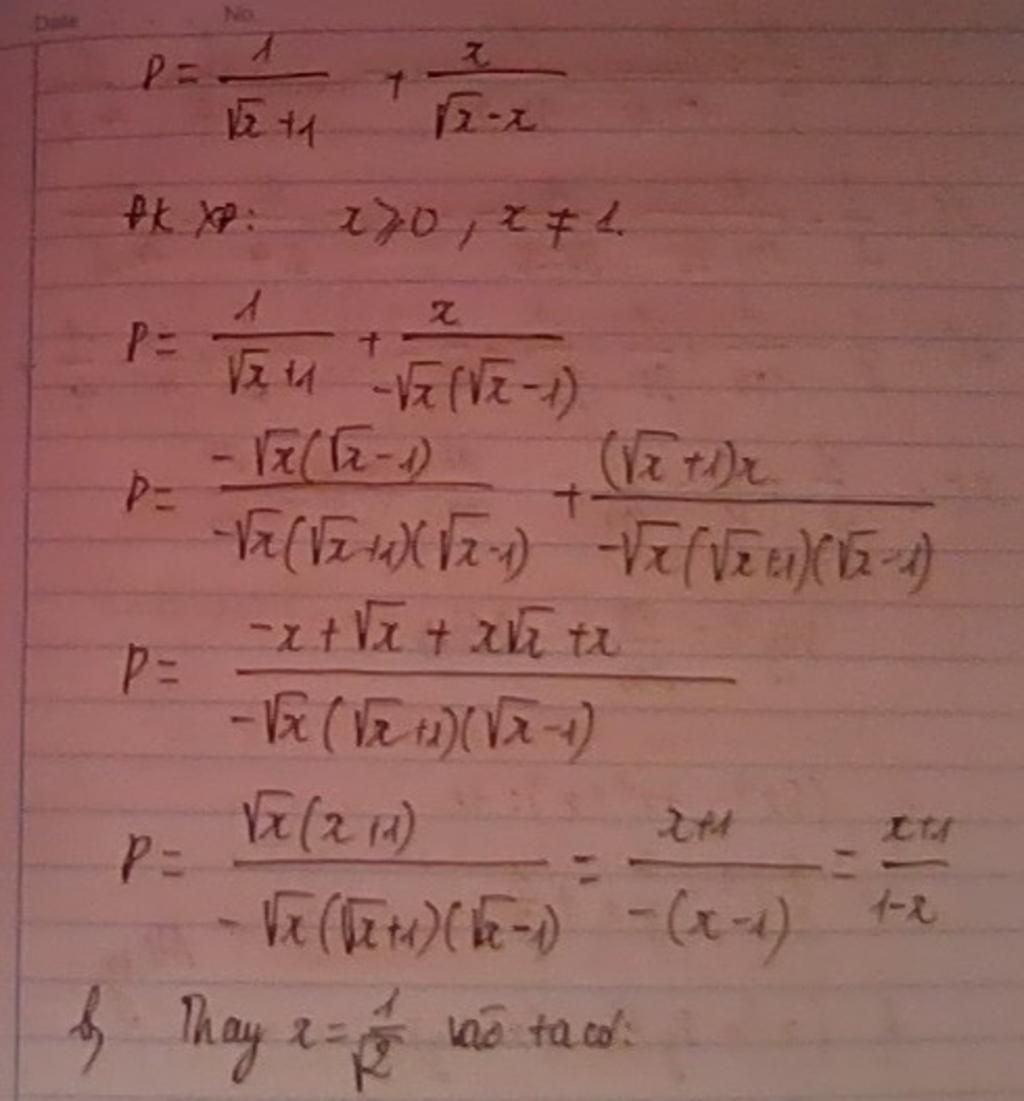 Date No.
P = 1/(√x +1) + x/(√x - x)
ĐKXĐ: x ⩾ 0 , x ≠ 1.
P = 1/(√x +1) + x/(-√x(√x -1))
P = -√x(√x -1)/(-√x(√x +1)(√x -1)) + (√x +1)x/(-√x(√x +1)(√x -1))
P = (-x + √x + x√x + x)/(-√x(√x +1)(√x -1))
P = √x(x +1)/(-√x(√x +1)(√x -1)) = (x+1)/(-(x -1)) = (x+1)/(1-x)
b) Thay x = 1/√2 vào ta có: